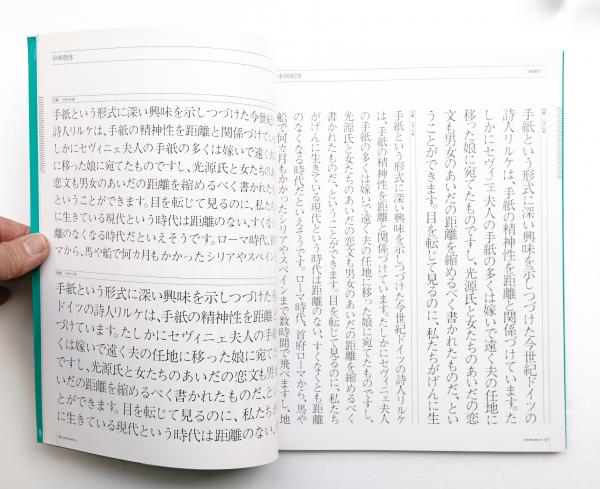 中明朝体
手紙という形式に深い興味を示しつづけた今世紀
詩人リルケは、手紙の精神性を距離と関係づけてい
しかにセヴィニェ夫人の手紙の多くは嫁いで遠く
に移った娘に宛てたものですし、光源氏と女たちの
恋文も男女のあいだの距離を縮めるべく書かれた
ということができます。目を転じて見るのに、私た
に生きている現代という時代は距離のない、すくな
離のなくなる時代だといえそうです。ローマ時代、
マから、馬や船で何ヵ月もかかったシリアやスペイン
手紙という形式に深い興味を示しつづけた
ドイツの詩人リルケは、手紙の精神性を距離
づけています。たしかにセヴィニェ夫人の手
くは嫁いで遠く夫の任地に移った娘に宛てた
し、光源氏と女たちのあいだの恋文も男
だの距離を縮めるべく書かれたものだ、と
とができます。目を転じて見るのに、私たちが
に生きている現代という時代は距離のない、
中明朝体
手紙という形式に深い興味を示しつづけた今世紀ドイツの
詩人リルケは、手紙の精神性を距離と関係づけています。た
しかにセヴィニェ夫人の手紙の多くは嫁いで遠く夫の任地に
移った娘に宛てたものですし、光源氏と女たちのあいだの恋
文も男女のあいだの距離を縮めるべく書かれたものだ、とい
うことができます。目を転じて見るのに、私たちがげんに生
手紙という形式に深い興味を示しつづけた今世紀ドイツの詩人リルケ
は、手紙の精神性を距離と関係づけています。たしかにセヴィニェ夫人
の手紙の多くは嫁いで遠く夫の任地に移った娘に宛てたものですし、
光源氏と女たちのあいだの恋文も男女のあいだの距離を縮めるべく
書かれたものだ、ということができます。目を転じて見るのに、私たち
がげんに生きている現代という時代は距離のない、すくなくとも距離
のなくなる時代だといえそうです。ローマ時代、首府ローマから、馬や
船で何ヵ月もかかったシリアやスペインまで数時間で飛べますし、地